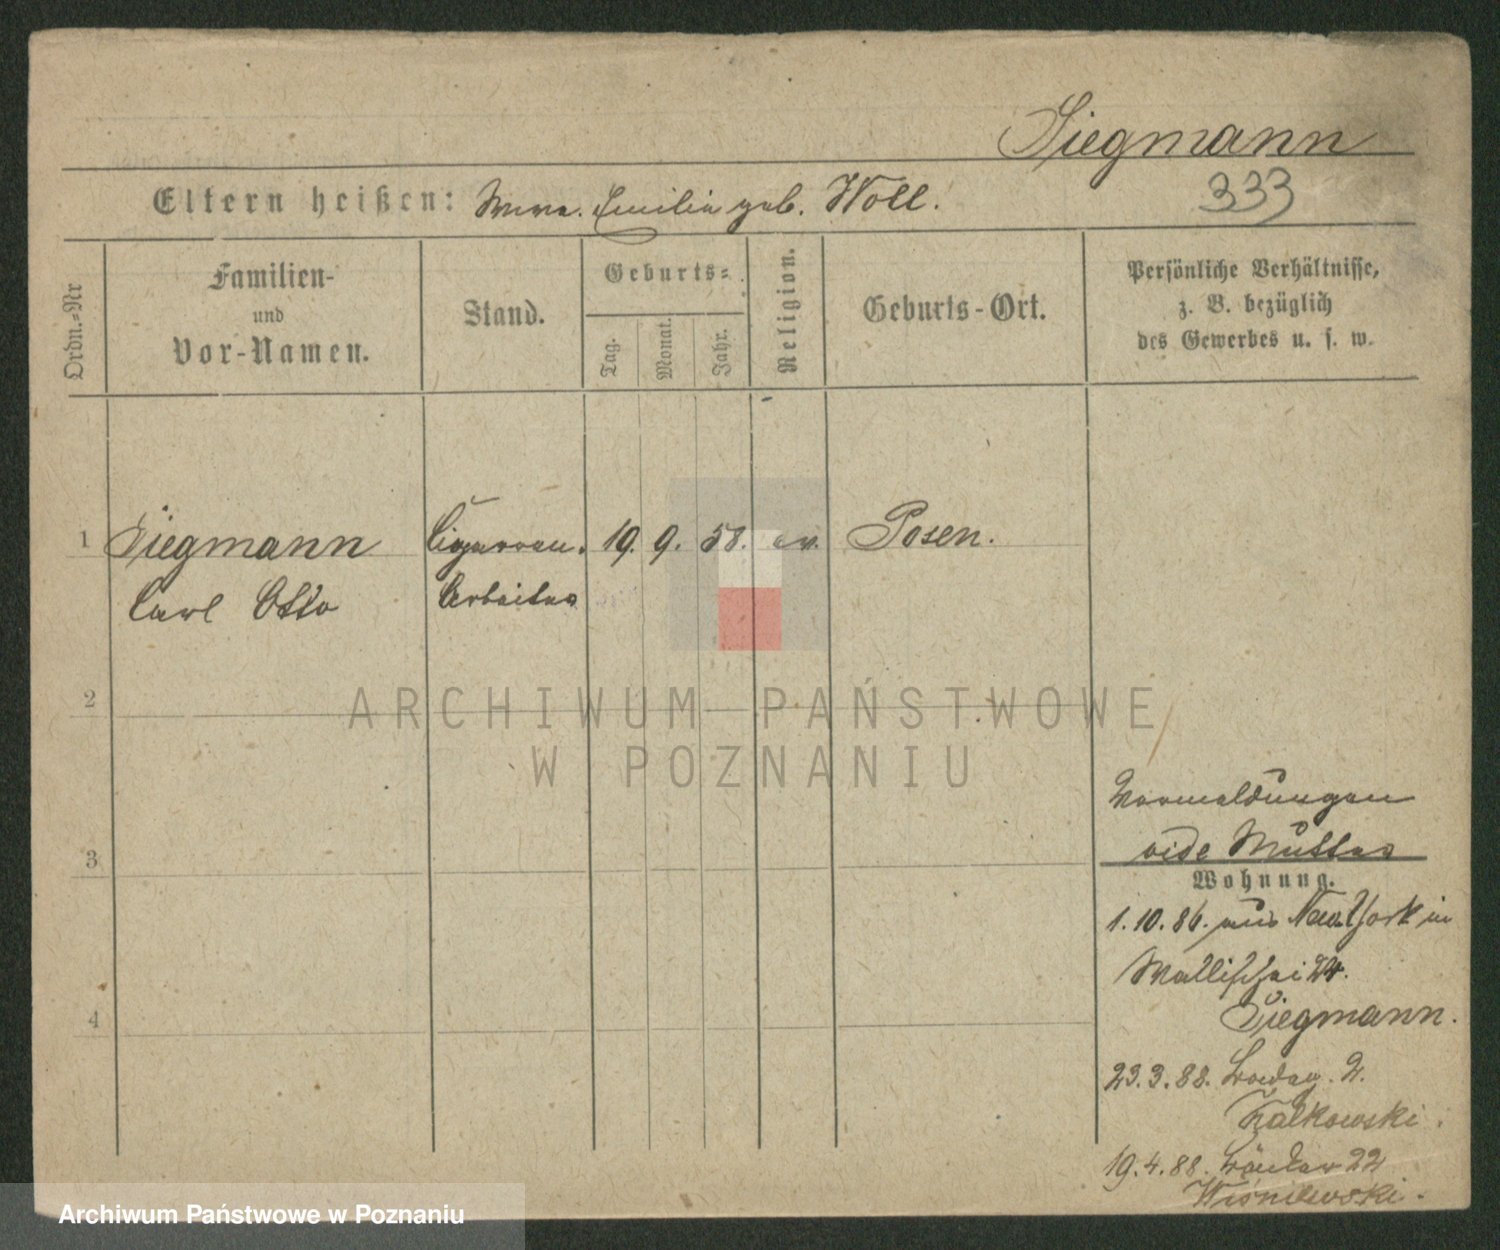 Siegmann
333
Eltern heißen: Wwe. Emilie geb. Woll.
Ordn.=Nr
Familien-
und
Vor-Namen.
Stand.
Geburts=
Tag.
Monat.
Jahr.
Religion.
Geburts-Ort.
Persönliche Verhältnisse,
z. B. bezüglich
des Gewerbes u. s. w.
1 Siegmann Cigarren. 19. 9. 58. ev. Posen.
Carl Otto Arbeiter
2
ARCHIWUM PAŃSTWOWE
W POZNANIU
3
Vormeldungen
vide Mutter
Wohnung.
1.10.86. aus New York in
Wallischei 24.
Siegmann.
4
23.3.88. 2.
Falkowski.
19.4.88. 22
Wiśniewski.
Archiwum Państwowe w Poznaniu